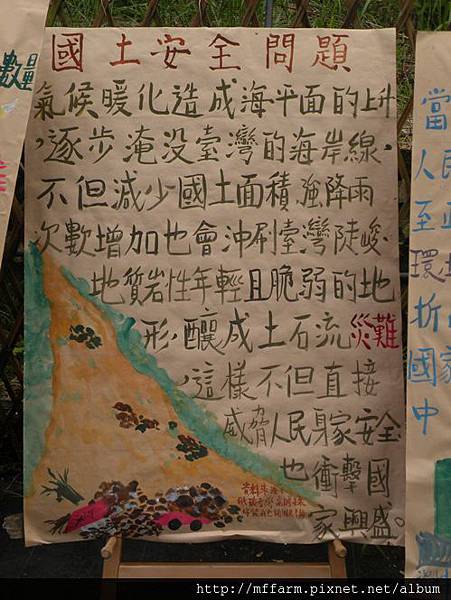 國土安全問題
氣候暖化造成海平面的上升
，逐步淹没臺灣的海岸線，
不但減少國土面積，強降雨
次數增加也會沖刷臺灣陡峻、
地質岩性年輕且脆弱的地
形，釀成土石流災難
，這樣不但直接
威脅人民身家安全
也衝擊國
家興盛。
數量
當
人民
至
環境
折
國家
中
http://mffarm.pixnet.net/album